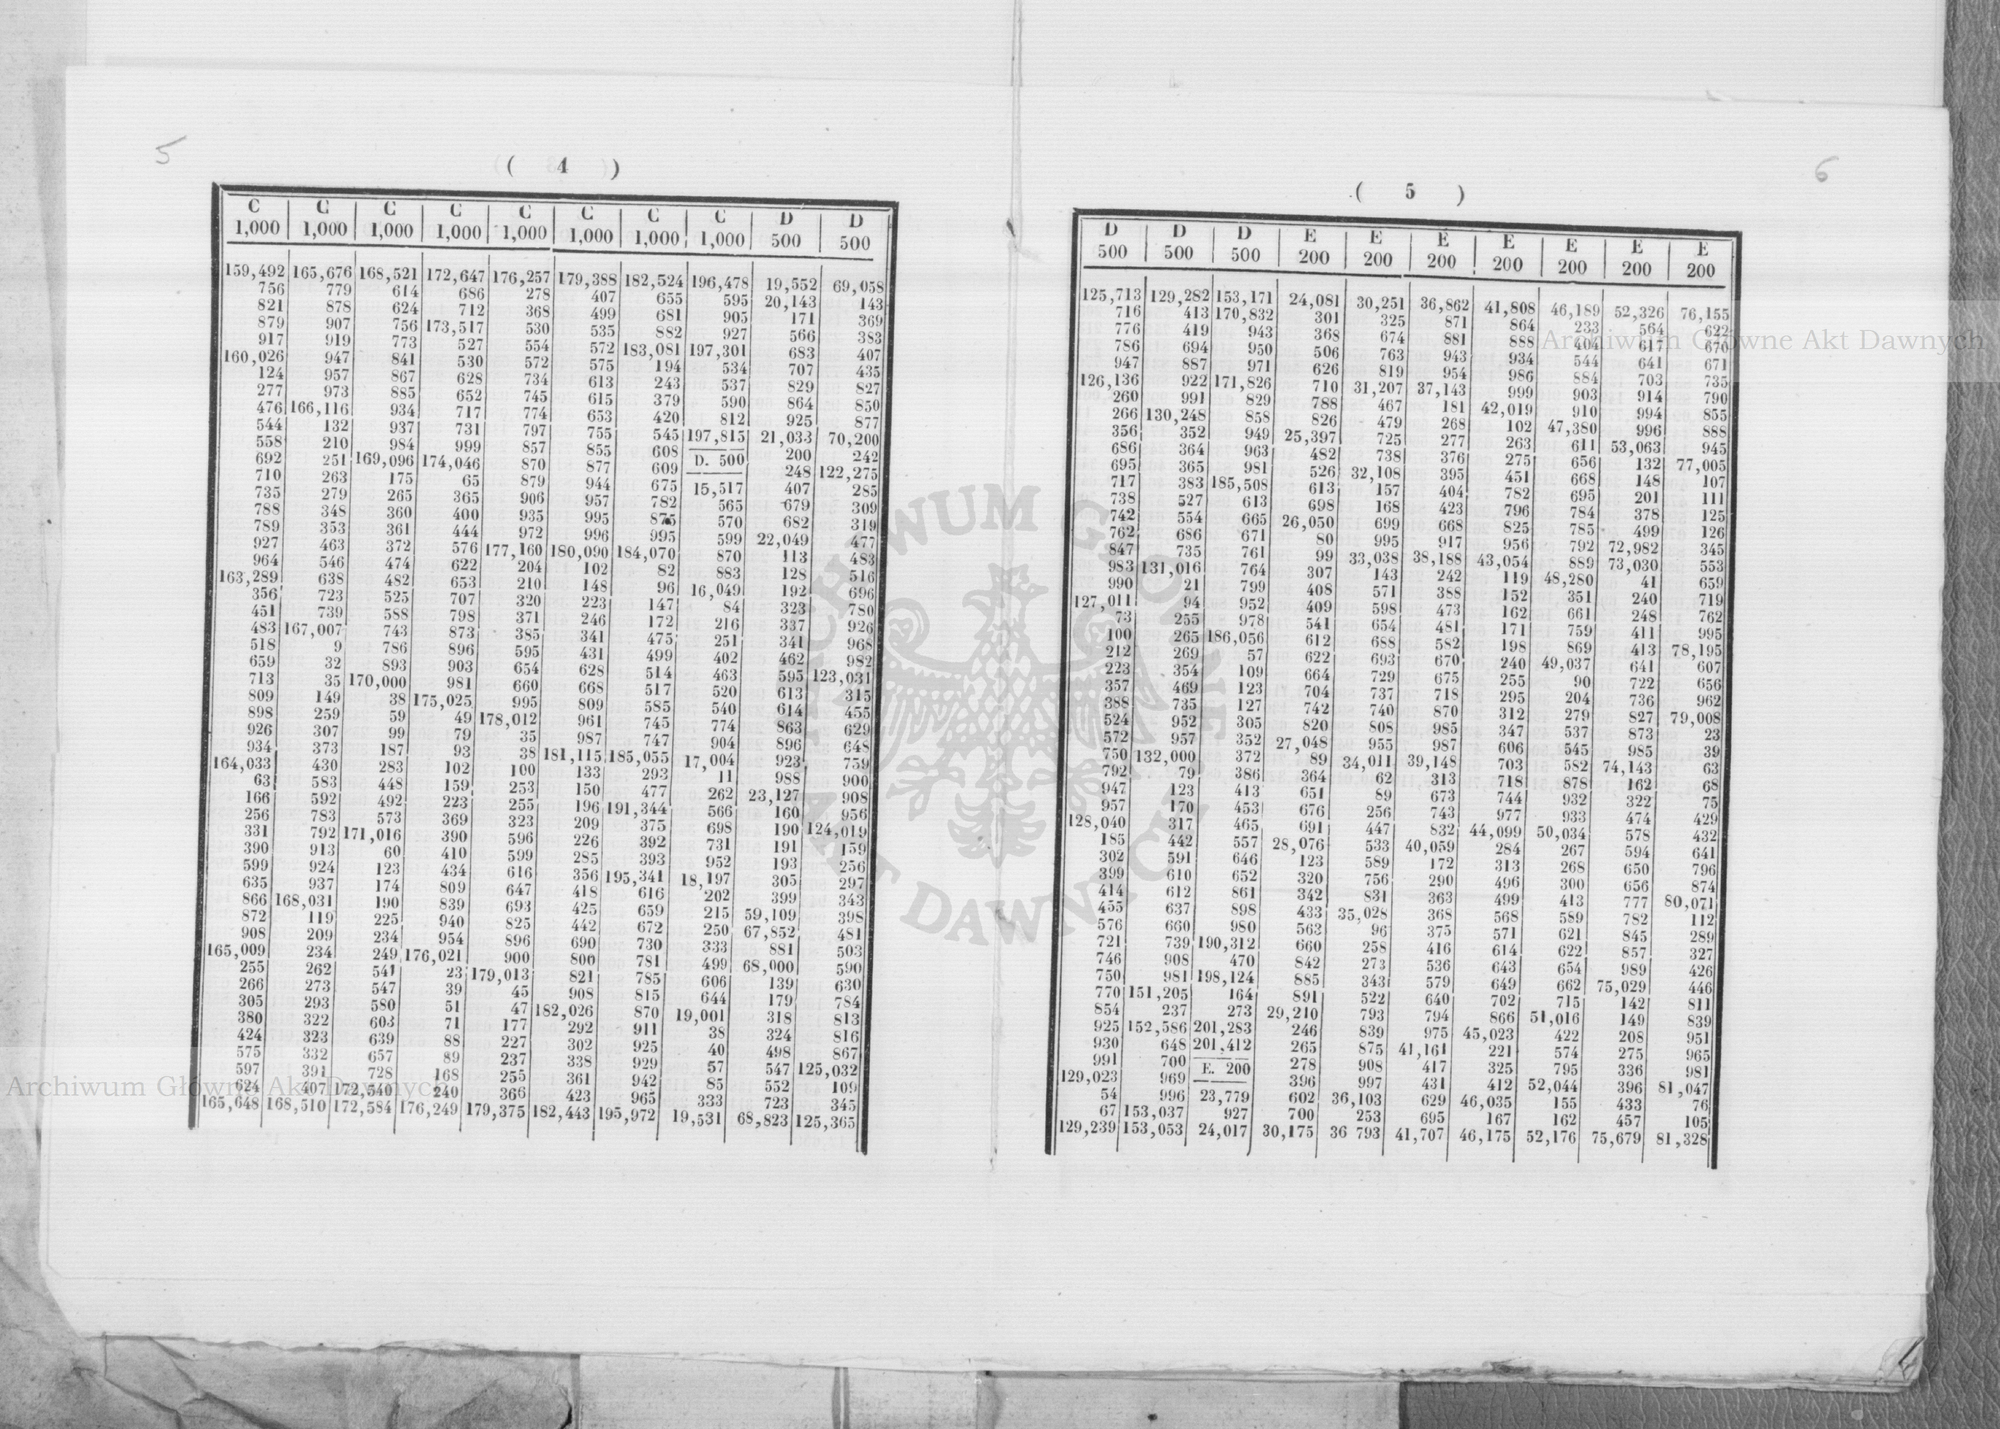 5
( 4 )
C C C C C C C C D D
1,000 1,000 1,000 1,000 1,000 1,000 1,000 1,000 500 500
159,492 165,676 168,521 172,647 176,257 179,388 182,524 196,478 19,552 69,058
756 779 614 686 278 407 655 595 20,143 143
821 878 624 712 368 499 681 905 171 369
879 907 756 173,517 530 535 882 927 566 383
917 919 773 527 554 572 183,081 197,301 683 407
160,026 947 841 530 572 575 194 534 707 435
124 957 867 628 734 613 243 537 829 827
277 973 885 652 745 615 379 590 864 850
476 166,116 934 717 774 653 420 812 925 877
544 132 937 731 797 755 545 197,815 21,033 70,200
558 210 984 999 857 855 608 D. 500 200 242
692 251 169,096 174,046 870 877 609 248 122,275
710 263 175 65 879 944 675 15,517 407 285
735 279 265 365 906 957 782 565 679 309
788 348 360 400 935 995 875 570 682 319
789 353 361 444 972 996 995 599 22,049 477
927 463 372 576 177,160 180,090 184,070 870 113 483
964 546 474 622 204 102 82 883 128 516
163,289 638 482 653 210 148 96 16,049 192 696
356 723 525 707 320 223 147 84 323 780
451 739 588 798 371 246 172 216 337 926
483 167,007 743 873 385 341 475 251 341 968
518 9 786 896 595 431 499 402 462 982
659 32 893 903 654 628 514 463 595 123,031
713 35 170,000 981 660 668 517 520 613 315
809 149 38 175,025 995 809 585 540 614 455
898 259 59 49 178,012 961 745 774 863 629
926 307 99 79 35 987 747 904 896 648
934 373 187 93 38 181,115 185,055 17,004 923 759
164,033 430 283 102 100 133 293 11 988 900
63 583 448 159 253 150 477 262 23,127 908
166 592 492 223 255 196 191,344 566 160 956
256 783 573 369 323 209 375 698 190 124,019
331 792 171,016 390 596 226 392 731 191 159
390 913 60 410 599 285 393 952 193 256
599 924 123 434 616 356 195,341 18,197 305 297
635 937 174 809 647 418 616 202 399 343
866 168,031 190 839 693 425 659 215 59,109 398
872 119 225 940 825 442 672 250 67,852 481
908 209 234 954 896 690 730 333 881 503
165,009 234 249 176,021 900 800 781 499 68,000 590
255 262 541 23 179,013 821 785 606 139 630
266 273 547 39 45 908 815 644 179 784
305 293 580 51 47 182,026 870 19,001 318 813
380 322 603 71 177 292 911 38 324 816
424 323 639 88 227 302 925 40 498 867
575 332 657 89 237 338 929 57 547 125,032
597 391 728 168 255 361 942 85 552 109
624 407 172,540 240 366 423 965 333 723 345
165,648 168,510 172,584 176,249 179,375 182,443 195,972 19,531 68,823 125,365
6
( 5 )
D D D E E E E E E E
500 500 500 200 200 200 200 200 200 200
125,713 129,282 153,171 24,081 30,251 36,862 41,808 46,189 52,326 76,155
716 413 170,832 301 325 871 864 233 564 622
776 419 943 368 674 881 888 404 617 670
786 694 950 506 763 943 934 544 641 671
947 887 971 626 819 954 986 884 703 735
126,136 922 171,826 710 31,207 37,143 999 903 914 790
260 991 829 788 467 181 42,019 910 994 855
266 130,248 858 826 479 268 102 47,380 996 888
356 352 949 25,397 725 277 263 611 53,063 945
686 364 963 482 738 376 275 656 132 77,005
695 365 981 526 32,108 395 451 668 148 107
717 383 185,508 613 157 404 782 695 201 111
738 527 613 698 168 423 796 784 378 125
742 554 665 26,050 699 668 825 785 499 126
762 686 671 80 995 917 956 792 72,982 345
847 735 761 99 33,038 38,188 43,054 889 73,030 553
983 131,016 764 307 143 242 119 48,280 41 659
990 21 799 408 571 388 152 351 240 719
127,011 94 952 409 598 473 162 661 248 762
73 255 978 541 654 481 171 759 411 995
100 265 186,056 612 688 582 198 869 413 78,195
212 269 57 622 693 670 240 49,037 641 607
223 354 109 664 729 675 255 90 722 656
357 469 123 704 737 718 295 204 736 962
388 735 127 742 740 870 312 279 827 79,008
524 952 305 820 808 985 347 537 873 23
572 957 352 27,048 955 987 606 545 985 39
750 132,000 372 89 34,011 39,148 703 582 74,143 63
792 79 386 364 62 313 718 878 162 68
947 123 413 651 89 673 744 932 322 75
957 170 453 676 256 743 977 933 474 429
128,040 317 465 691 447 832 44,099 50,034 578 432
185 442 557 28,076 533 40,059 284 267 594 641
302 591 646 123 589 172 313 268 650 796
399 610 652 320 756 290 496 300 656 874
414 612 861 342 831 363 499 413 777 80,071
455 637 898 433 35,028 368 568 589 782 112
576 660 980 563 96 375 571 621 845 289
721 739 190,312 660 258 416 614 622 857 327
746 908 470 842 273 536 643 654 989 426
750 981 198,124 885 343 579 649 662 75,029 446
770 151,205 164 891 522 640 702 715 142 811
854 237 273 29,210 793 794 866 51,016 149 839
925 152,586 201,283 246 839 975 45,023 422 208 951
930 648 201,412 265 875 41,161 221 574 275 965
991 700 E. 200 278 908 417 325 795 336 981
129,023 969 396 997 431 412 52,044 396 81,047
54 996 23,779 602 36,103 629 46,035 155 433 76
67 153,037 927 700 253 695 167 162 457 105
129,239 153,053 24,017 30,175 36 793 41,707 46,175 52,176 75,679 81,328
Archiwum Główne Akt Dawnych
Archiwum Główne Akt Dawnych
ARCHIWUM GŁÓWNE AKT DAWNYCH